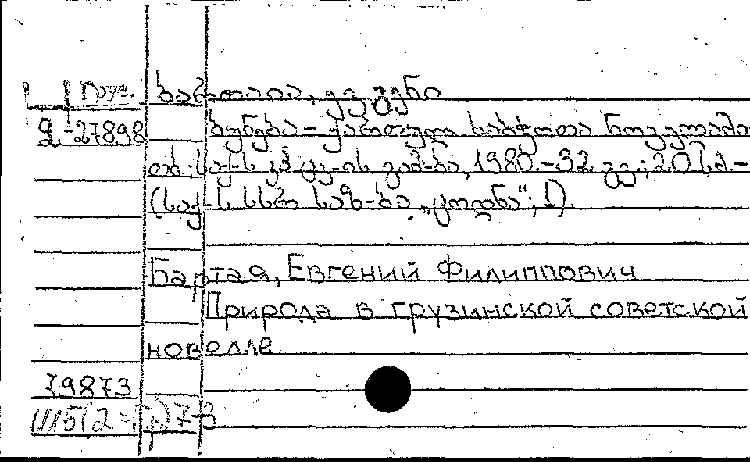 Груз. ბართაია, ევგენი
2-27898 ბუნება ქართულ საბჭოთა ნოველაში
თბ., 1980.-32 გვ.; 20 სმ-
(საქ-ს სსრ საზ-ბა „ცოდნა“; 1)
Бартая, Евгений Филиппович
Природа в грузинской советской
новелле
79873
Ш5(2=Гр)7-3